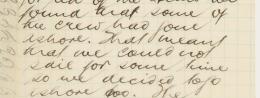 found that some of
the crew had gone
ashore. That meant
that we could not
sail for some time
so we decided to go
ashore too. The